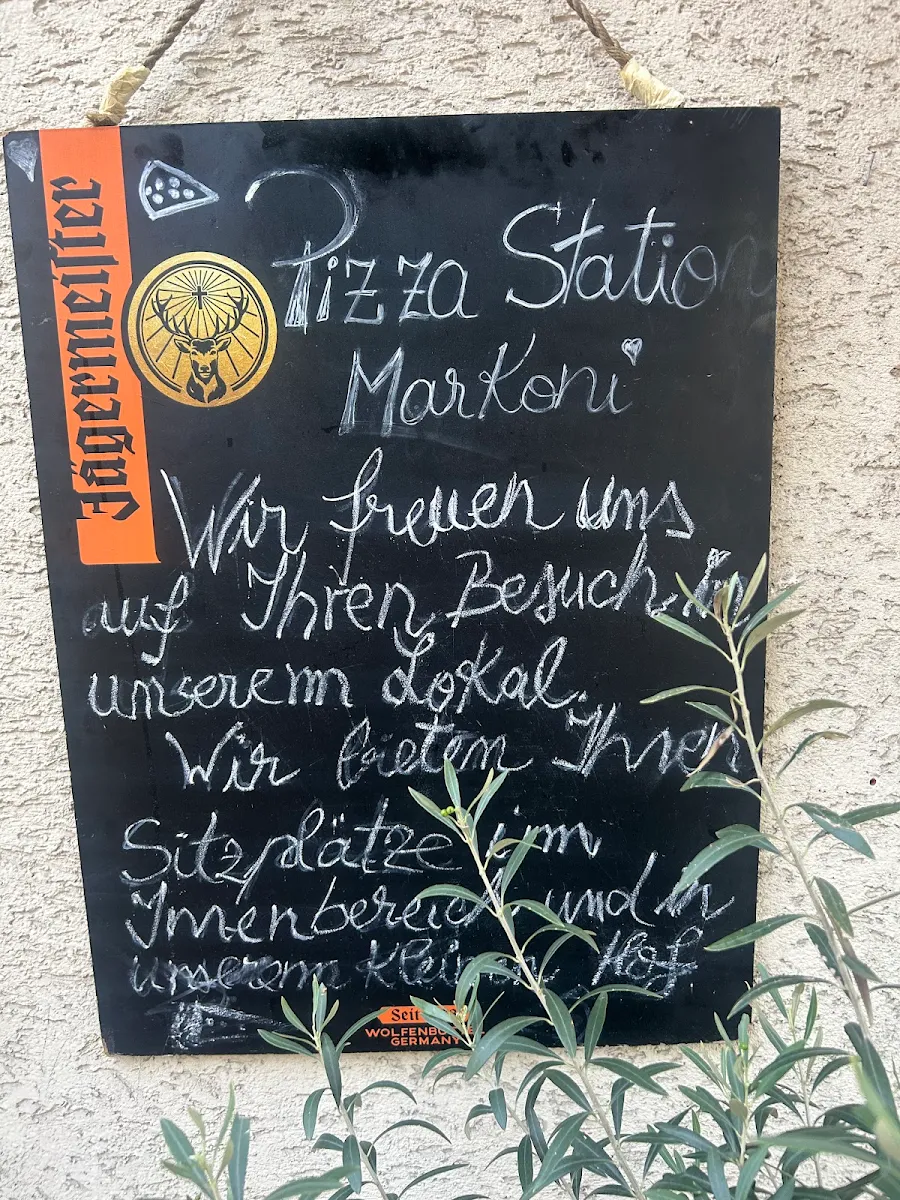 Jägermeister
Pizza Station
Markoni
Wir freuen uns
auf Ihren Besuch in
unserem Lokal.
Wir bieten Ihnen
Sitzplätze im
Innenbereich und in
unserem kleinen Hof
Seit
WOLFENBÜ
GERMANY